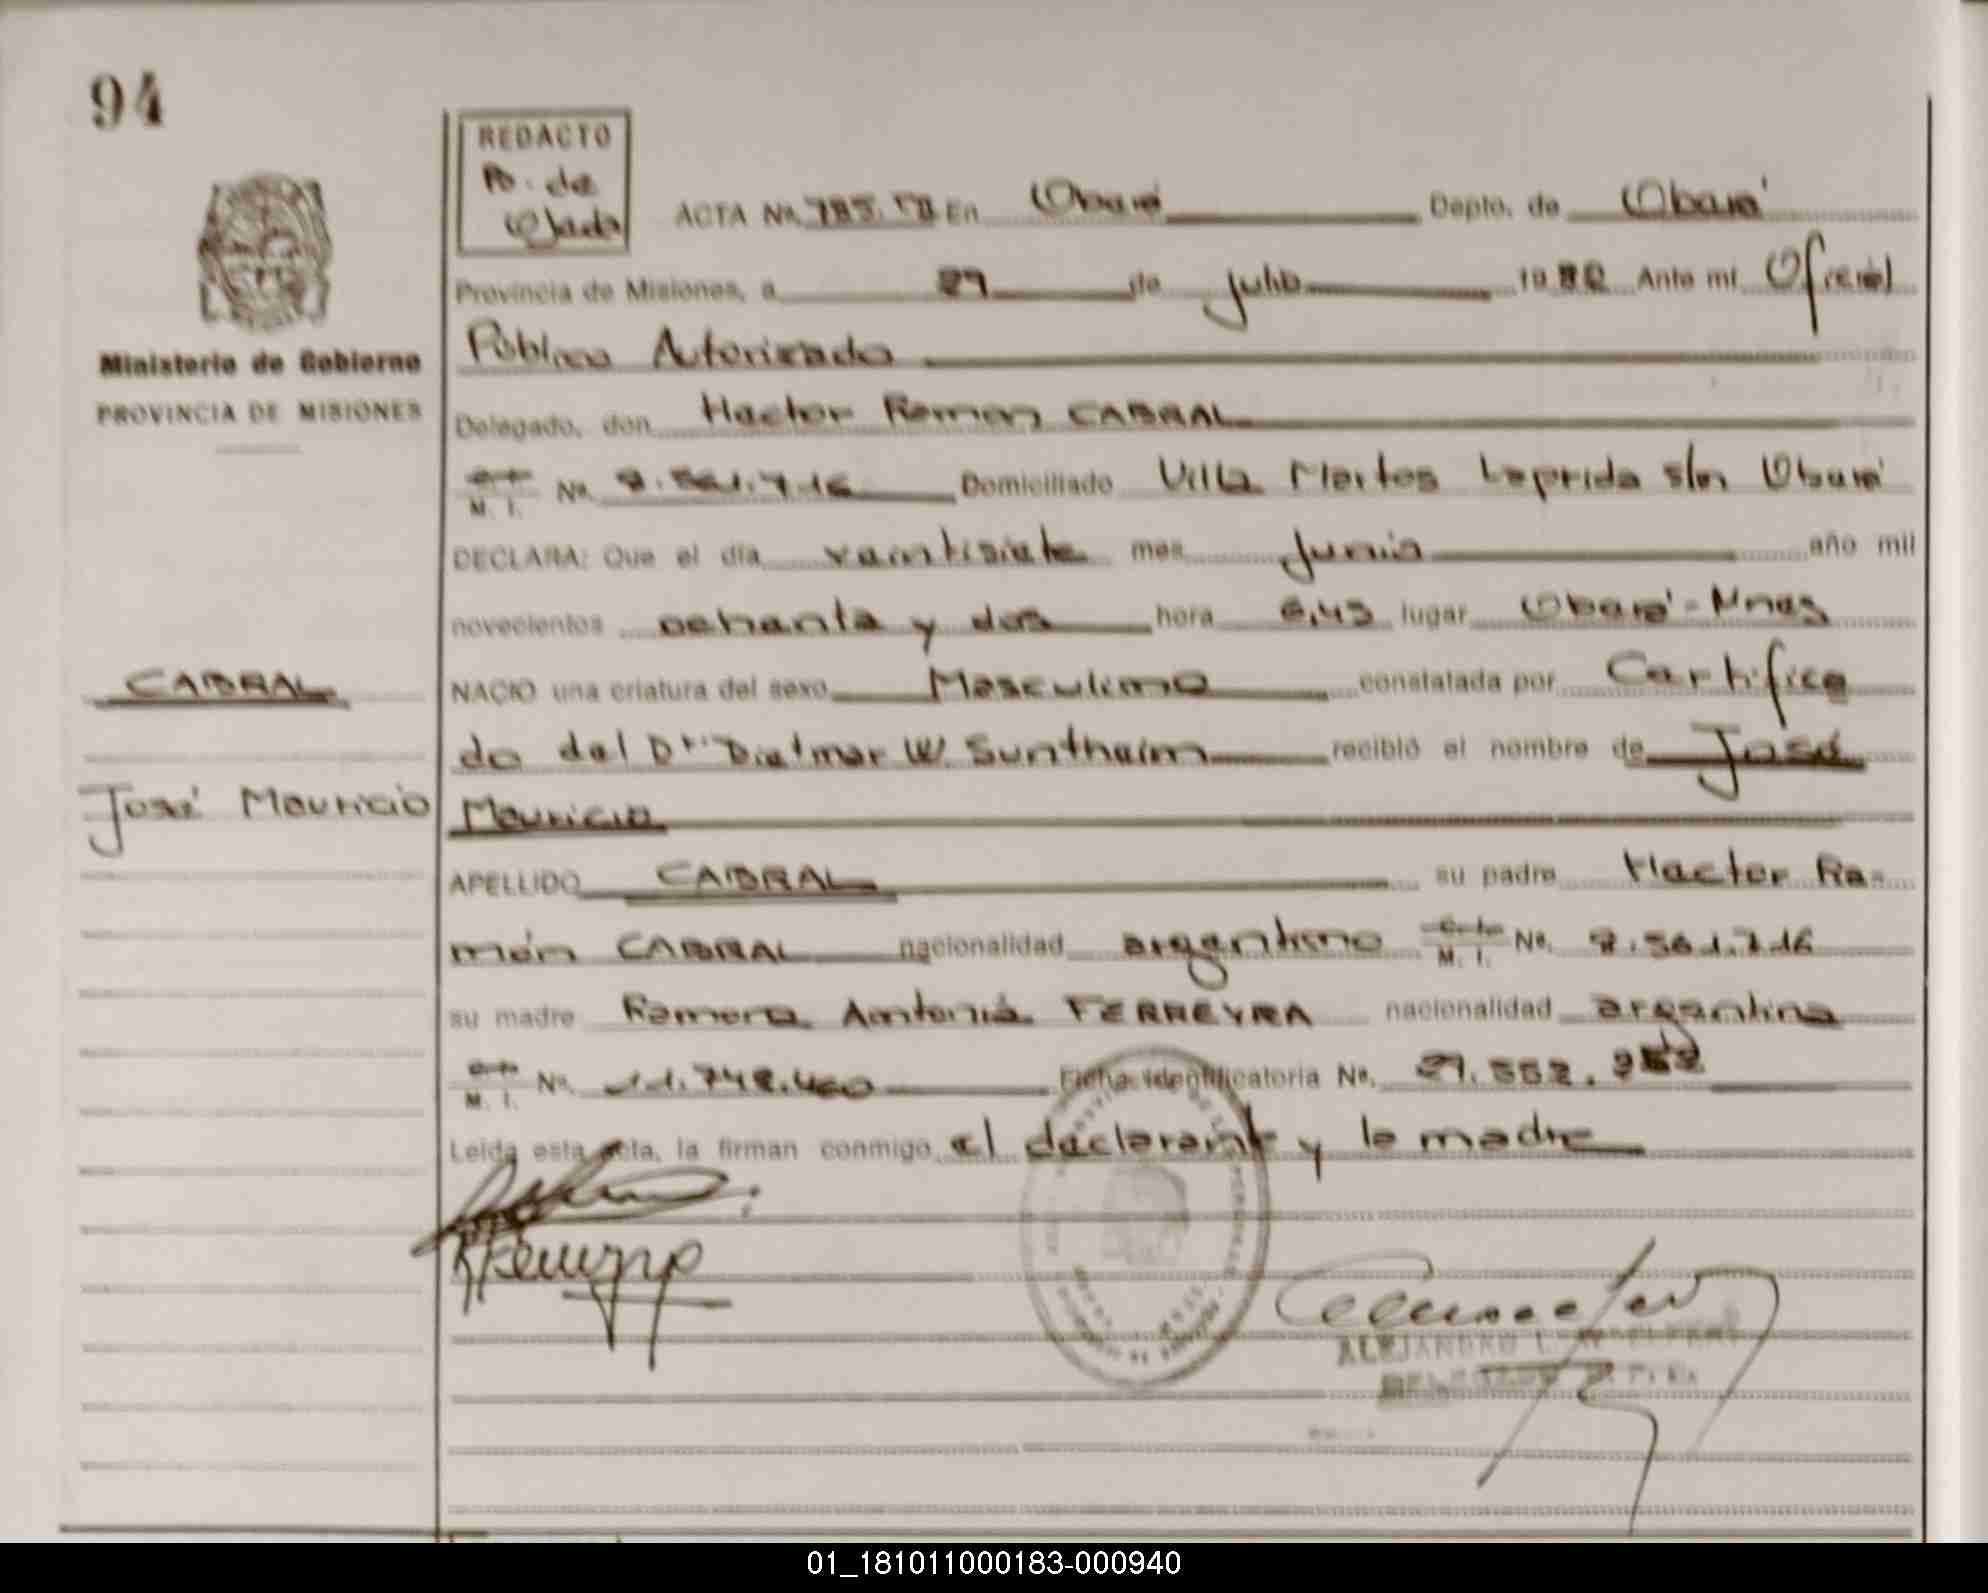 94
REDACTO
Po. de
Ministerio de Gobierno
PROVINCIA DE MISIONES
ACTA Nº 785. En Oberá Depto. de Oberá
Provincia de Misiones, a de julio 1982 Ante mí Oficial
Público Autorizado
Delegado, don Hector Ramon CABRAL
M. I. Nº 561.716 Domiciliado Villa Martos Laprida s/n Oberá
DECLARA: Que el día ventisiete mes Junio año mil
novecientos ochenta y dos hora 6,45 lugar Oberá-Mnes
CABRAL
NACIO una criatura del sexo Masculino constatada por Certifica
do del Dr. Dietmar W. Suntheim recibió el nombre de José
José Mauricio
Mauricio
APELLIDO CABRAL su padre Hector Ra-
món CABRAL nacionalidad argentino M. I. Nº 561.716
su madre Ramona Antonia FERREYRA nacionalidad argentina
M. I. Nº 11.748.460 Ficha Identificatoria Nº 29.552.
Leída esta acta, la firman conmigo el declarante y la madre
ALEJANDRO
01_181011000183-000940